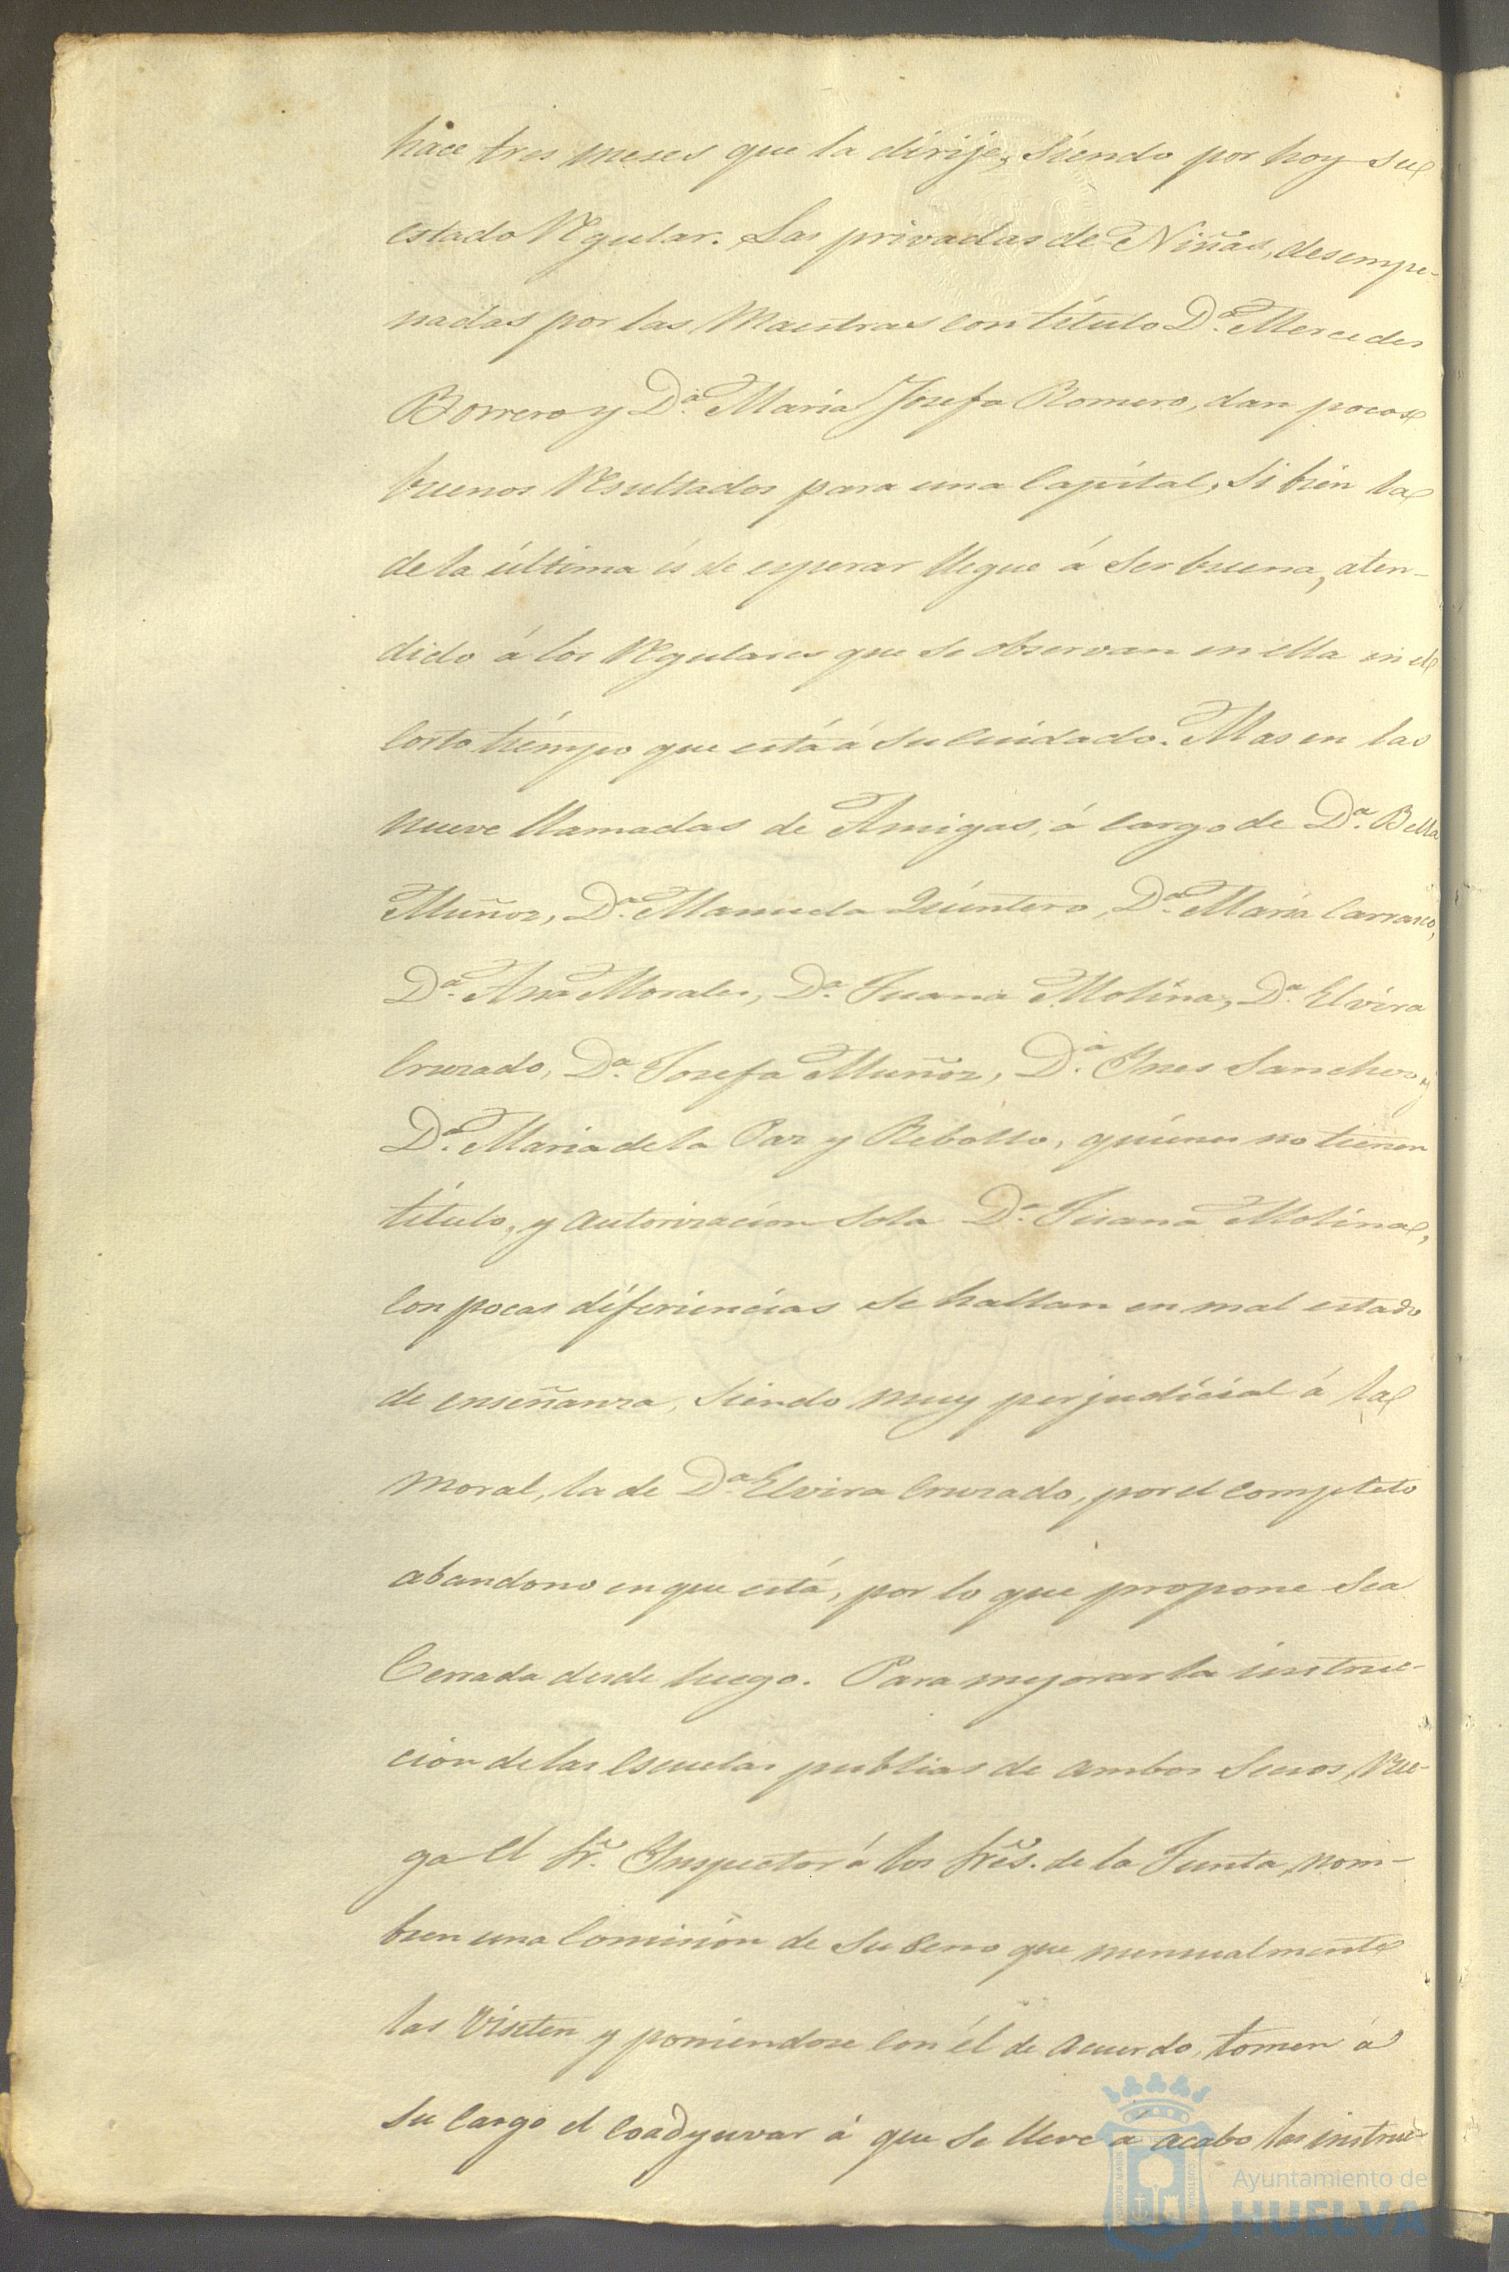 hace tres meses que la dirije, siendo por hoy su
estado regular. Las privadas de Niñas, desempe-
nadas por las Maestras con título D.ª Mercedes
Borrero y D.ª María Josefa Romero, dan pocos
buenos resultados para una Capital, si bien la
de la última és de esperar llegue á ser buena, aten-
dido á los regulares que se observan en ella en el
corto tiémpo que está á su cuidado. Mas en las
nueve llamadas de Amigas, á cargo de D.ª Bella
Muñoz, D.ª Manuela Quintero, D.ª María Carrasco,
D.ª Ana Morales, D.ª Juana Molina, D.ª Elvira
Cruzado, D.ª Josefa Muñoz, D.ª Ynes Sanchez y
D.ª Maria de la Paz y Rebollo, quienes no tienen
título, y autorizacion sola D.ª Juana Molina,
con pocas diferiencias se hallan en mal estado
de enseñanza, siendo muy perjudicial á la
moral, la de D.ª Elvira Cruzado, por el completo
abandono en que está, por lo que propone sea
Cerrada desde luego. Para mejorar la instruc-
ción de las Escuelas publias de ambos Secsos, rue-
ga el Sr. Ynspector á los Sres. de la Junta, nom-
bren una Comisión de su seno que mensualmente
las visiten y poniendose con él de acuerdo, tomen á
su cargo el coadyuvar á que se lleve á acabo las instruc-
Ayuntamiento de
HUELVA